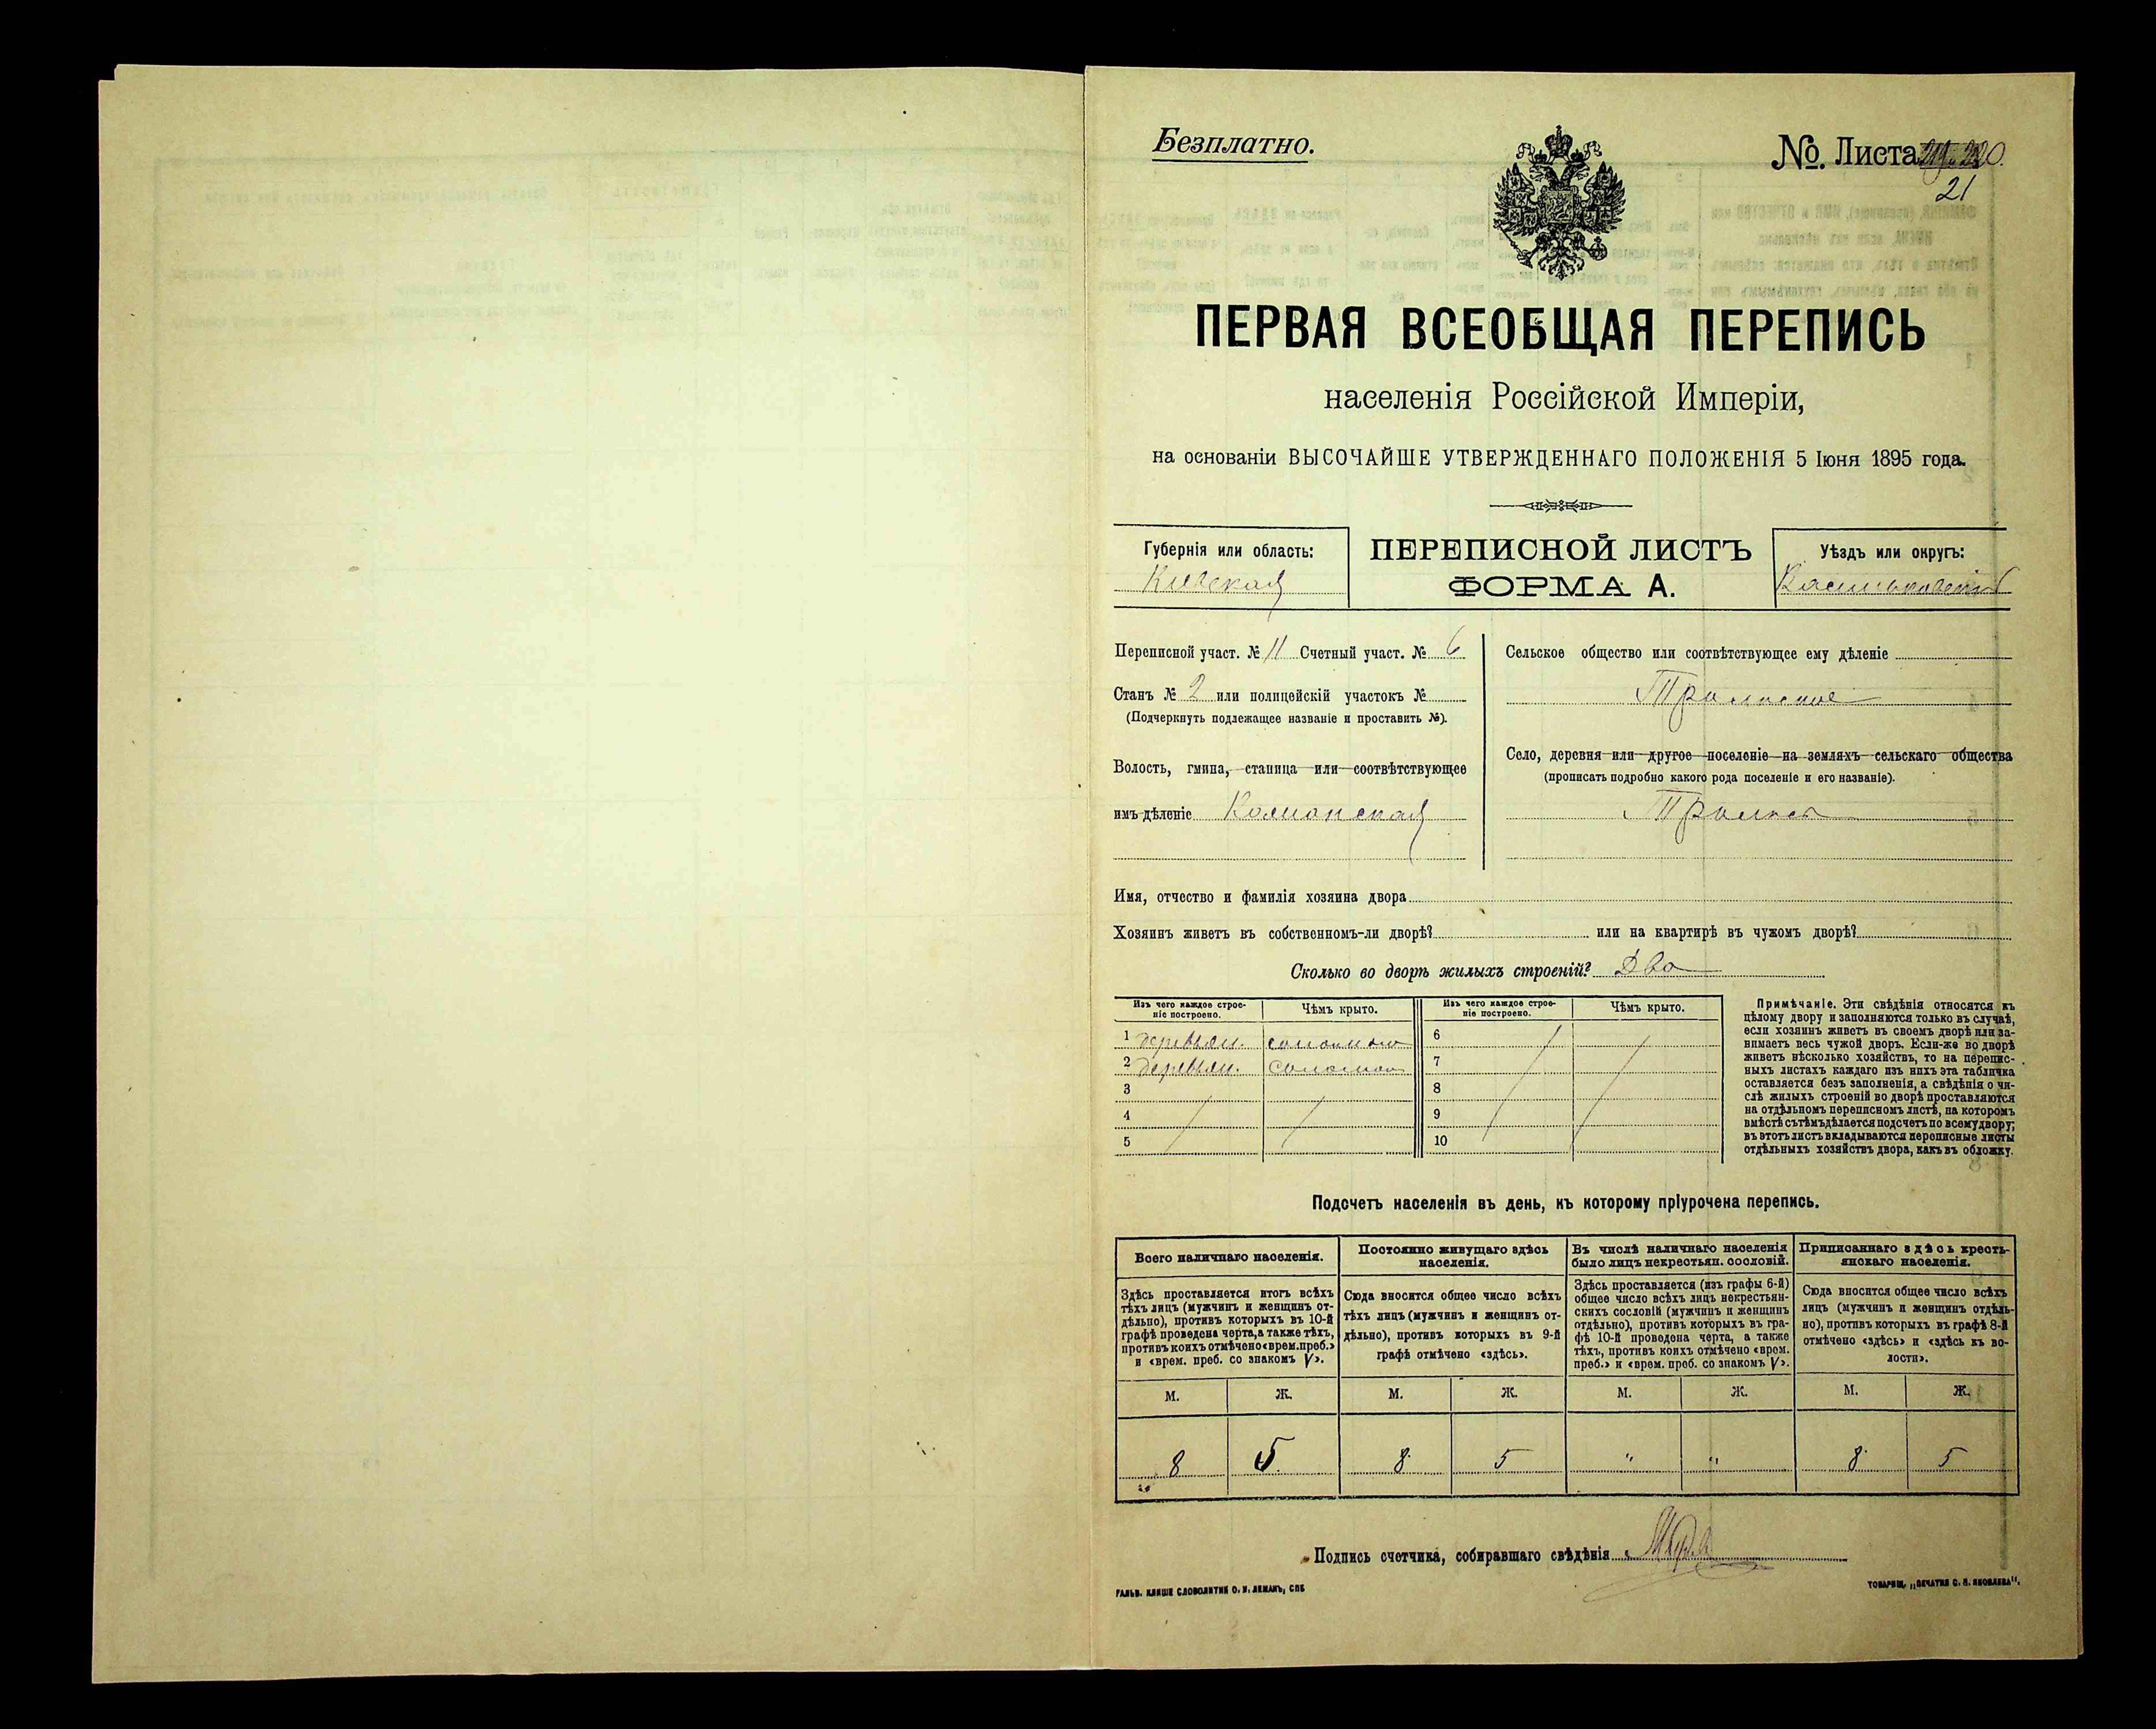 Безплатно.
№. Листа
21
ПЕРВАЯ ВСЕОБЩАЯ ПЕРЕПИСЬ
населенія Россійской Имперіи,
на основаніи ВЫСОЧАЙШЕ УТВЕРЖДЕННАГО ПОЛОЖЕНІЯ 5 Іюня 1895 года.
Губернія или область:
Кіевская
ПЕРЕПИСНОЙ ЛИСТЪ
ФОРМА А.
Уѣздъ или округъ:
Васильковскій
Переписной участ. № 11 Счетный участ. № 6
Станъ № 2 или полицейскій участокъ №
(Подчеркнуть подлежащее названіе и проставить №).
Волость, гмина, станица или соотвѣтствующее
имъ дѣленіе
Сельское общество или соотвѣтствующее ему дѣленіе
Село, деревня или другое поселеніе на земляхъ сельскаго общества
(прописать подробно какого рода поселеніе и его названіе).
Имя, отчество и фамилія хозяина двора
Хозяинъ живетъ въ собственномъ-ли дворѣ? или на квартирѣ въ чужомъ дворѣ?
Сколько во дворѣ жилыхъ строеній? Два
Изъ чего каждое строе-
ніе построено.
Чѣмъ крыто.
1 деревян. соломою
2 деревян. соломою
3
4
5
Изъ чего каждое строе-
ніе построено.
Чѣмъ крыто.
6
7
8
9
10
Примѣчаніе. Эти свѣдѣнія относятся къ
цѣлому двору и заполняются только въ случаѣ,
если хозяинъ живетъ въ своемъ дворѣ или за-
нимаетъ весь чужой дворъ. Если-же во дворѣ
живетъ нѣсколько хозяйствъ, то на перепис-
ныхъ листахъ каждаго изъ нихъ эта табличка
оставляется безъ заполненія, а свѣдѣнія о чи-
слѣ жилыхъ строеній во дворѣ проставляются
на отдѣльномъ переписномъ листѣ, на которомъ
вмѣстѣ съ тѣмъ дѣлается подсчетъ по всему двору;
въ этотъ листъ вкладываются переписные листы
отдѣльныхъ хозяйствъ двора, какъ въ обложку.
Подсчетъ населенія въ день, къ которому пріурочена перепись.
Всего наличнаго населенія.
Здѣсь проставляется итогъ всѣхъ
тѣхъ лицъ (мужчинъ и женщинъ от-
дѣльно), противъ которыхъ въ 10-й
графѣ проведена черта, а также тѣхъ,
противъ коихъ отмѣчено «врем. преб.»
и «врем. преб. со знакомъ V».
М. Ж.
8 5
Постоянно живущаго здѣсь
населенія.
Сюда вносится общее число всѣхъ
тѣхъ лицъ (мужчинъ и женщинъ от-
дѣльно), противъ которыхъ въ 9-й
графѣ отмѣчено «здѣсь».
М. Ж.
8 5
Въ числѣ наличнаго населенія
было лицъ некрестьян. сословій.
Здѣсь проставляется (изъ графы 6-й)
общее число всѣхъ лицъ некрестьян-
скихъ сословій (мужчинъ и женщинъ
отдѣльно), противъ которыхъ въ гра-
фѣ 10-й проведена черта, а также
тѣхъ, противъ коихъ отмѣчено «врем.
преб.» и «врем. преб. со знакомъ V».
М. Ж.
" "
Приписаннаго здѣсь кресть-
янскаго населенія.
Сюда вносится общее число всѣхъ
лицъ (мужчинъ и женщинъ отдѣль-
но), противъ которыхъ въ графѣ 8-й
отмѣчено «здѣсь» и «здѣсь къ во-
лости».
М. Ж.
8 5
Подпись счетчика, собиравшаго свѣдѣнія
ГАЛЬВ. КЛИШЕ СЛОВОЛИТНИ О. И. ЛЕМАНЪ, СПБ
ТОВАРИЩ. „ПЕЧАТНЯ С. П. ЯКОВЛЕВА“.